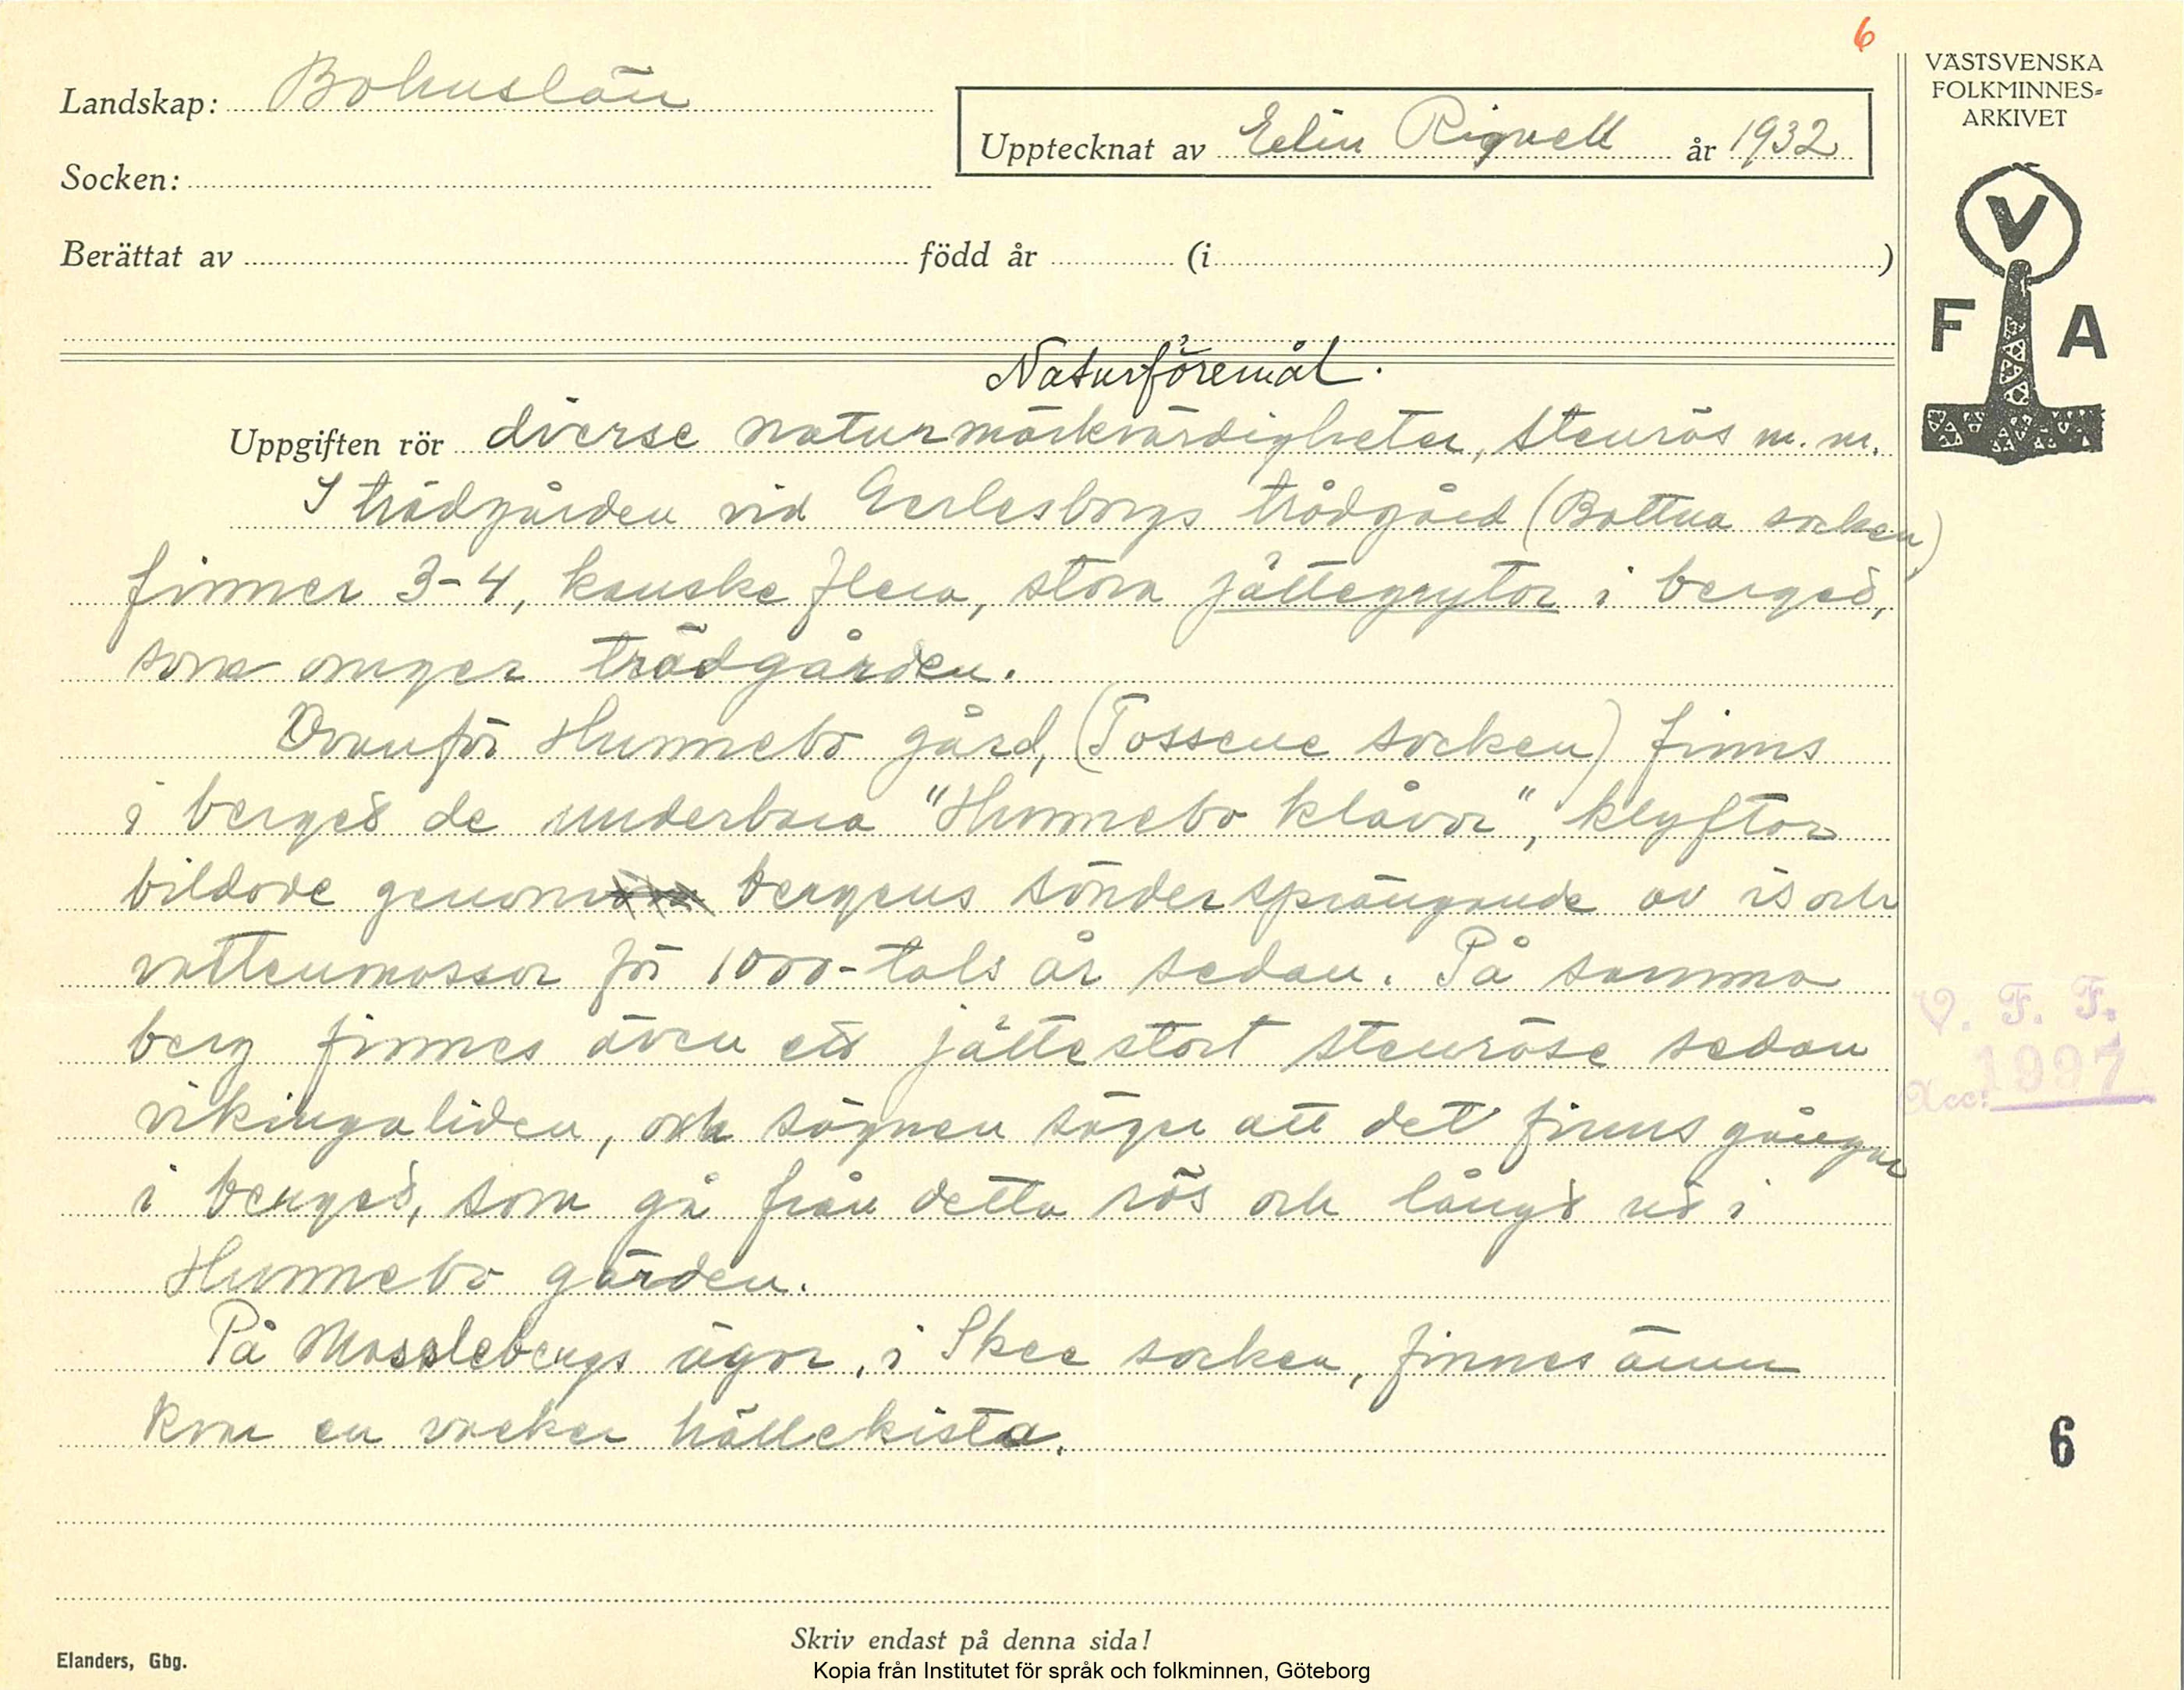 6
VÄSTSVENSKA
FOLKMINNES=
ARKIVET
Landskap: Bohuslän
Upptecknat av Rignell år 1932
Socken:
Berättat av född år (i )
V
F A
Naturföremål.
Uppgiften rör diverse naturmärkvärdigheter, stenrös m. m.
I trädgården vid Gerlesborgs trädgård (Bottna socken)
finner 3-4, kanske flera, stora jättegrytor i berget,
som omger trädgården.
Ovanför Hunnebo gård, (Tossene socken) finns
i berget de underbara "Hunnebo klåvor", klyftor
bildade genom bergens söndersprängande av is och
vattenmassor för 1000-tals år sedan. På samma
berg finnes även ett jättestort stenröse sedan
vikingatiden, och sägnen säger att det finns gångar
i berget, som gå från detta rös och långt ut i
Hunnebo gården.
På Masslebergs ägor, i Skee socken, finnes ännu
kvar en vacker hällekista.
V. F. F.
Acc: 1997
6
Skriv endast på denna sida!
Elanders, Gbg.
Kopia från Institutet för språk och folkminnen, Göteborg